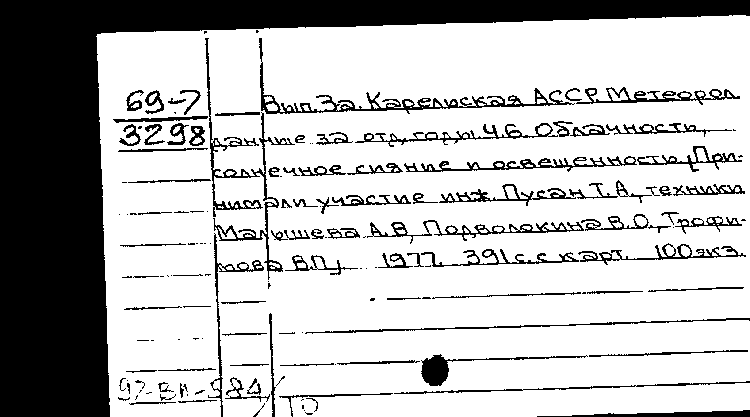 69-7
3298
Вып. 3а. Карельская АССР. Метеорол.
данные за отд. годы. Ч.6. Облачность,
солнечное сияние и освещенность. [При-
нимали участие инж. Пусан Т.А., техники
Малышева А.В., Подволокина В.О., Трофи-
мова В.П.]. 1977. 391 с. с карт. 100 экз.
97-ВЛ-584/
ТО